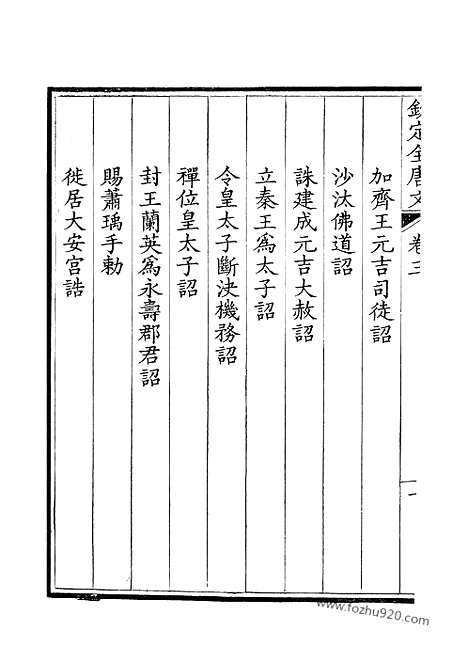 欽定全唐文 卷三
加齊王元吉司徒詔
沙汰佛道詔
誅建成元吉大赦詔
立秦王爲太子詔
令皇太子斷決機務詔
禪位皇太子詔
封王蘭英爲永壽郡君詔
賜蕭瑀手勅
徙居大安宮誥
www.fozhu920.com